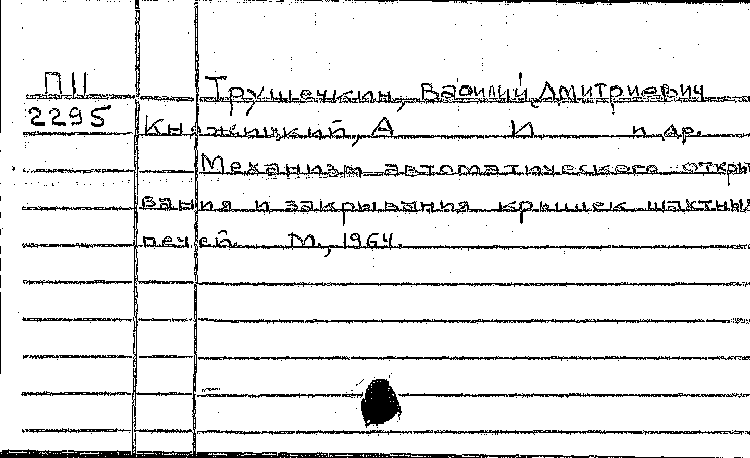 П11 Трушечкин, Василий Дмитриевич
2295 Княжицкий, А И и др.
Механизм автоматического откры
вания и закрывания крышек шахтных
печей. М., 1964.